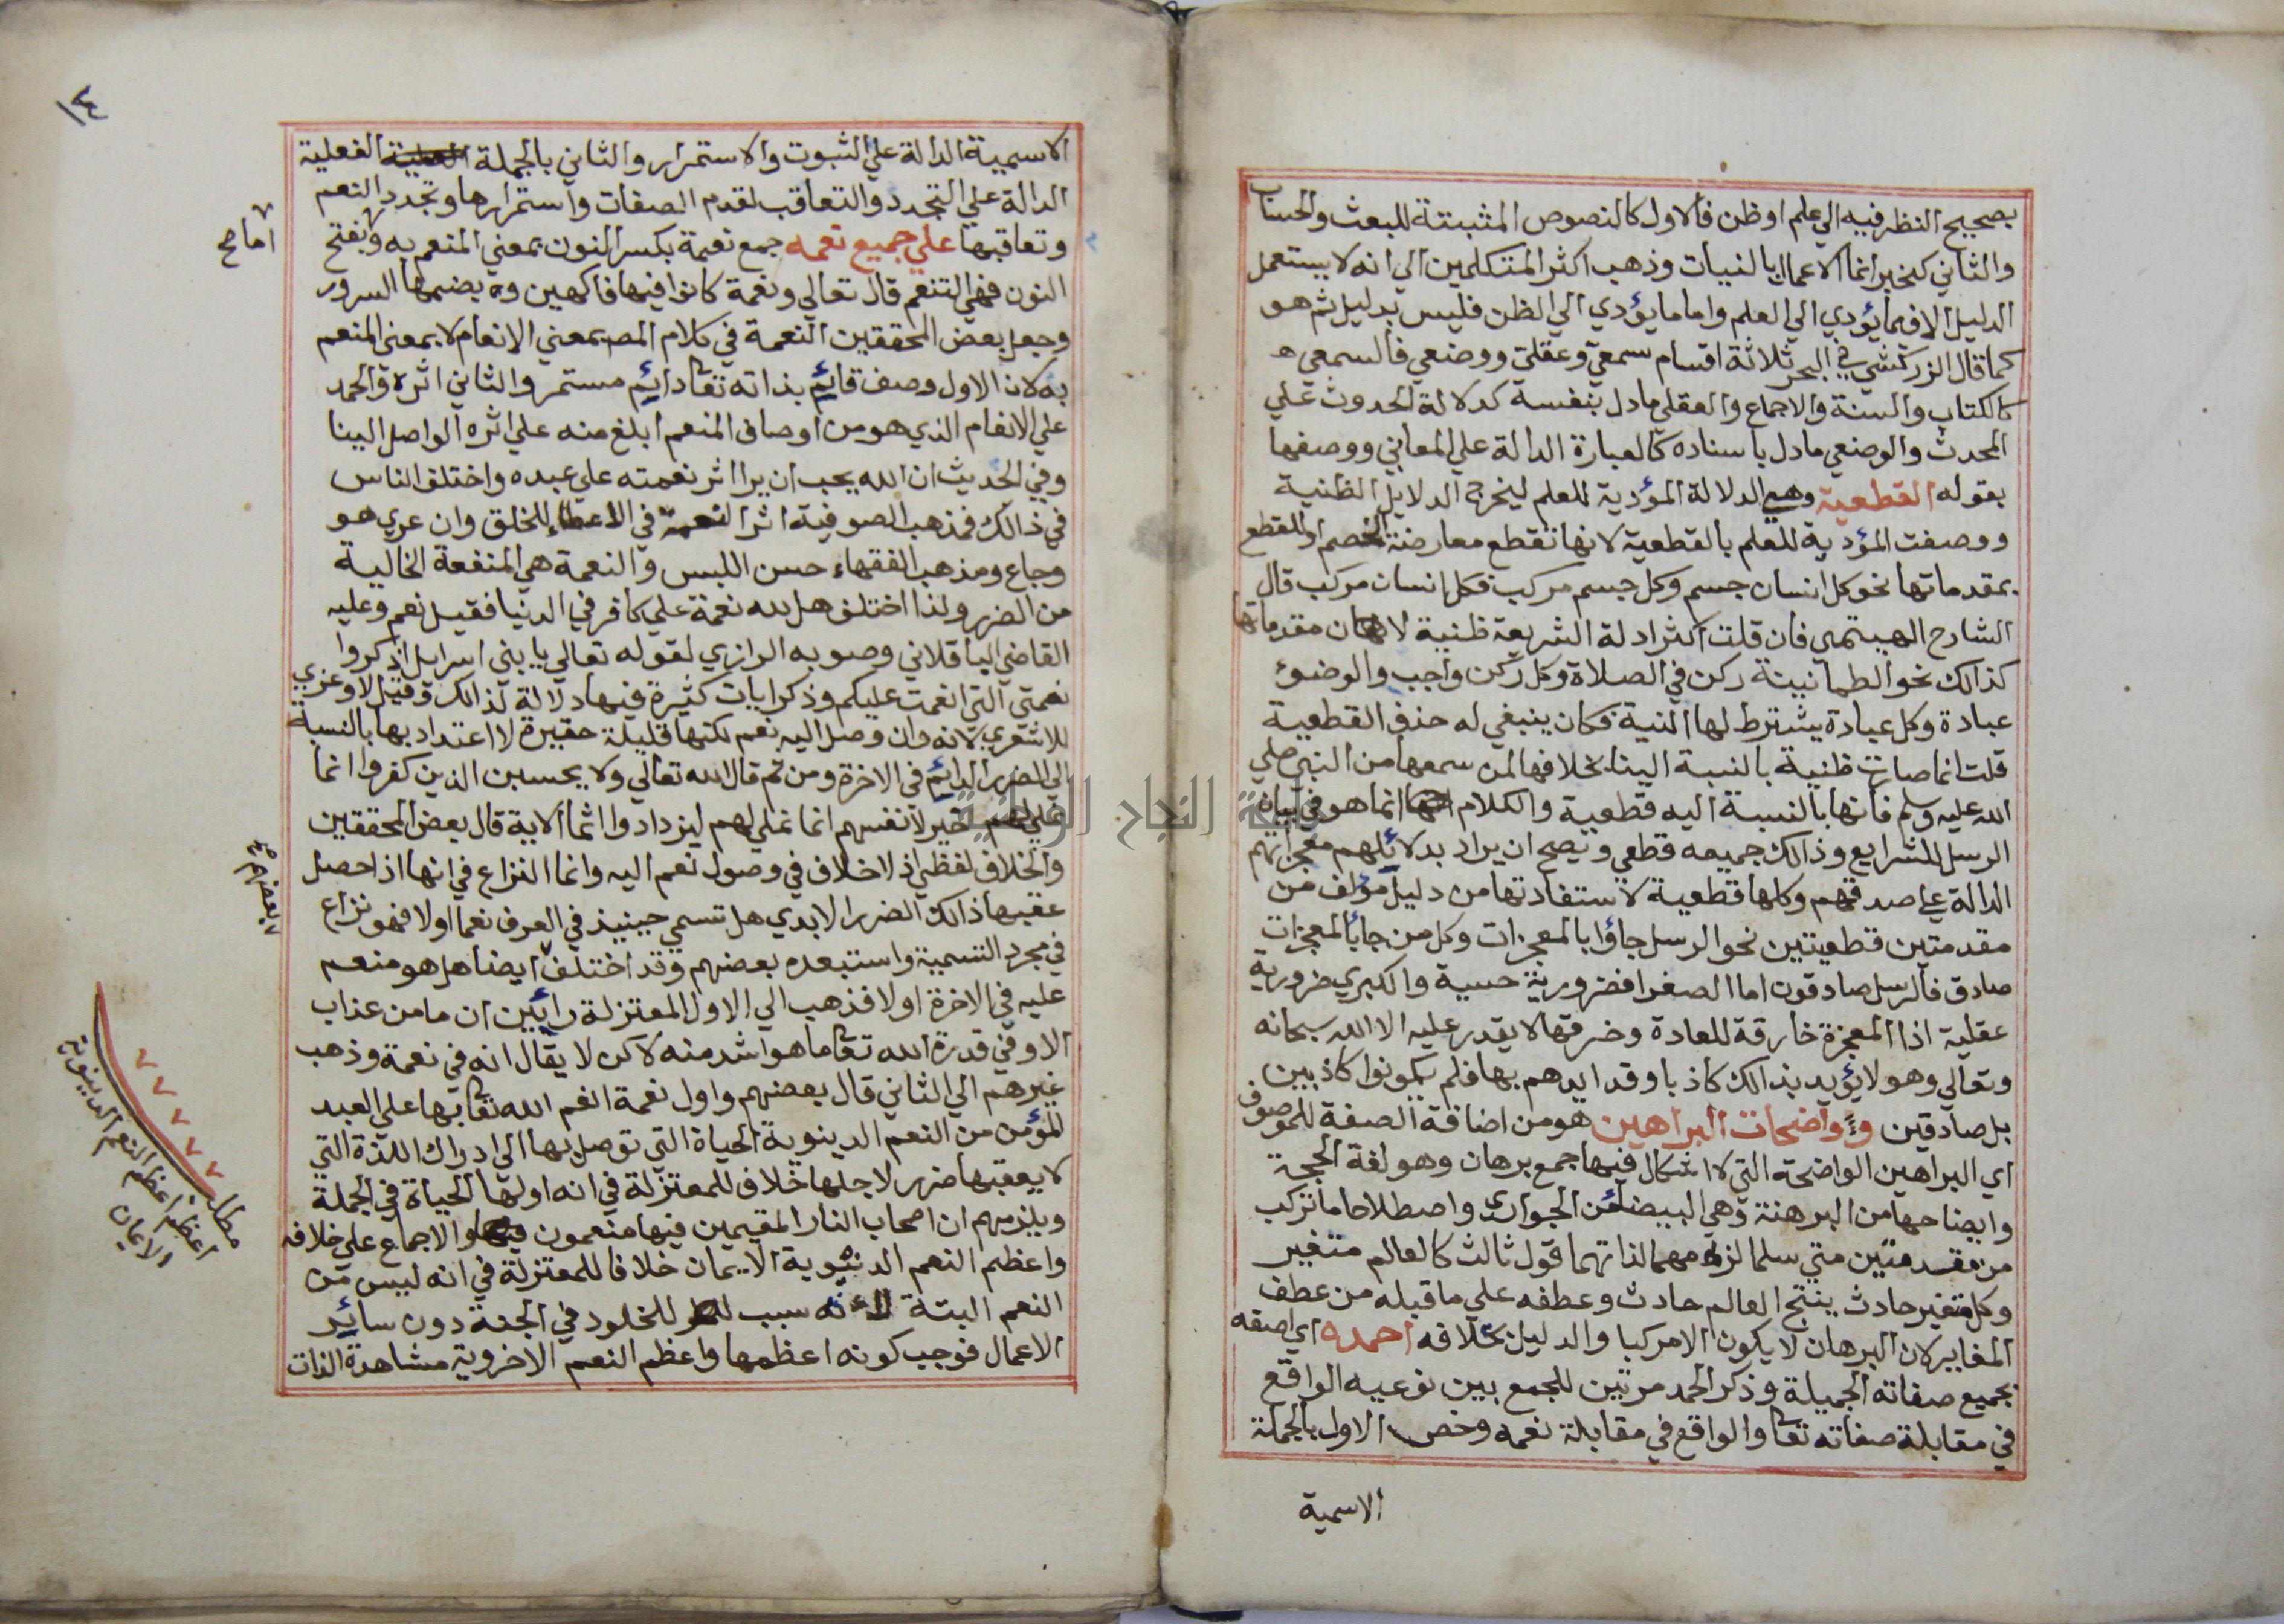 بصحيح النظر فيه الي علم او ظن فالاول كالنصوص المثبتة للبعث والحساب
والثاني كخبر انما الاعمال بالنيات وذهب اكثر المتكلمين الي انه لا يستعمل
الدليل الا فيما يؤدي الي العلم واما ما يؤدي الي الظن فليس بدليل ثم هو
كما قال الزركشي في البحر ثلاثة اقسام سمعي وعقلي ووضعي فالسمعي هـ
كالكتاب والسنة والاجماع والعقلي ما دل بنفسه كدلالة الحدوث علي
المحدث والوضعي ما دل باسناده كالعبارة الدالة علي المعاني ووصفها
بقوله القطعية وهي الدلالة المؤدية للعلم ليخرج الدلايل الظنية
ووصفت المؤدية للعلم بالقطعية لانها تقطع معارضة الخصم او للقطع
بمقدماتها نحو كل انسان جسم وكل جسم مركب فكل انسان مركب قال
الشارح الهيتمي فان قلت اكثر ادلة الشريعة ظنية لان مقدماتها
كذالك نحو الطمانينة ركن في الصلاة وكل ركن واجب والوضوء
عبادة وكل عبادة يشترط لها النية فكان ينبغي له حذف القطعية
قلت انما صارت ظنية بالنسبة الينا بخلافها لمن سمعها من النبي صلي
الله عليه وسلم فانها بالنسبة اليه قطعية والكلام انما هو في بيان
الرسل للشرايع وذالك جميعه قطعي ويصح ان يراد بدلائلهم معجزاتهم
الدالة علي صدقهم وكلها قطعية لاستفادتها من دليل مؤلف من
مقدمتين قطعيتين نحو الرسل جاؤا بالمعجزات وكل من جا بالمعجزات
صادق فالرسل صادقون اما الصغرا فضرورية حسية والكبري ضرورية
عقلية اذا المعجزة خارقة للعادة وخرقها لا يقدر عليه الا الله سبحانه
وتعالي وهو لا يؤيد بذالك كاذبا وقد ايدهم بها فلم يكونوا كاذبين
بل صادقين وواضحات البراهين هو من اضافة الصفة للموصوف
اي البراهين الواضحة التي لا اشكال فيها جمع برهان وهو لغة الحجة
وايضاحها من البرهنة وهي البيضا من الجواري واصطلاحا ما تركب
من مقدمتين متي سلما لزمهما لذاتهما قول ثالث كالعالم متغير
وكل متغير حادث ينتج العالم حادث وعطفه علي ما قبله من عطف
المغاير لان البرهان لا يكون الا مركبا والدليل بخلافه احمده اي اصفه
بجميع صفاته الجميلة وذكر الحمد مرتين للجمع بين نوعيه الواقع
في مقابلة صفاته تعا والواقع في مقابلة نعمه وخص الاول بالجملة
الاسمية
١٤
الاسمية الدالة علي الثبوت والاستمرار والثاني بالجملة الفعلية
الدالة علي التجدد والتعاقب لقدم الصفات واستمرارها وتجدد النعم
وتعاقبها علي جميع نعمه جمع نعمة بكسر النون بمعني المنعم به وبفتح
اما صح
النون فهي التنعم قال تعالي ونعمة كانوا فيها فاكهين وبضمها السرور
وجعل بعض المحققين النعمة في كلام المص بمعني الانعام لا بمعني المنعم
به لان الاول وصف قايم بذاته تعا دايم مستمر والثاني اثره والحمد
علي الانعام الذي هو من اوصاف المنعم ابلغ منه علي اثره الواصل الينا
وفي الحديث ان الله يحب ان يرا اثر نعمته علي عبده واختلف الناس
في ذالك فمذهب الصوفية اثر النعمة في الاعطاء للخلق وان عري هو
وجاع ومذهب الفقهاء حسن اللبس والنعمة هي المنفعة الخالية
من الضرر ولذا اختلف هل لله نعمة علي كافر في الدنيا فقيل نعم وعليه
القاضي الباقلاني وصوبه الرازي لقوله تعالي يا بني اسرايل اذكروا
نعمتي التي انعمت عليكم وذكر ايات كثيرة فيها دلالة لذالك وقيل لا وعزي
للاشعري لانه وان وصل اليه نعم لكنها قليلة حقيرة لا اعتداد بها بالنسبة
الي الضرر الدايم في الاخرة ومن ثم قال الله تعالي ولا يحسبن الذين كفروا انما
نملي لهم خير لانفسهم انما نملي لهم ليزدادوا اثما الاية قال بعض المحققين
والخلاف لفظي اذ لا خلاف في وصول نعم اليه وانما النزاع في انها اذا حصل
عقبها ذالك الضرر الابدي هل تسمي حينيذ في العرف نعما اولا فهو نزاع
في مجرد التسمية واستبعده بعضهم وقد اختلف ايضا هل هو منعم
عليه في الاخرة اولا فذهب الي الاول المعتزلة رائين ان ما من عذاب
الا وفي قدرة الله تعا ما هو اشد منه لاكن لا يقال انه في نعمة وذهب
غيرهم الي الثاني قال بعضهم واول نعمة انعم الله تعا بها علي العبد
المؤمن من النعم الدينوية الحياة التي توصل بها الي ادراك اللذة التي
لا يعقبها ضرر لاجلها خلاف للمعتزلة في انه اولها الحياة في الجملة
ويلزمهم ان اصحاب النار المقيمين فيها منعمون والاجماع علي خلافه
واعظم النعم الدنيوية الايمان خلافا للمعتزلة في انه ليس من
النعم البتة لانه سبب للخلود في الجنة دون سائر
الاعمال فوجب كونه اعظمها واعظم النعم الاخروية مشاهدة الذات
مطلب
اعظم النعم الدينوية
الايمان
جامعة النجاح الوطنية